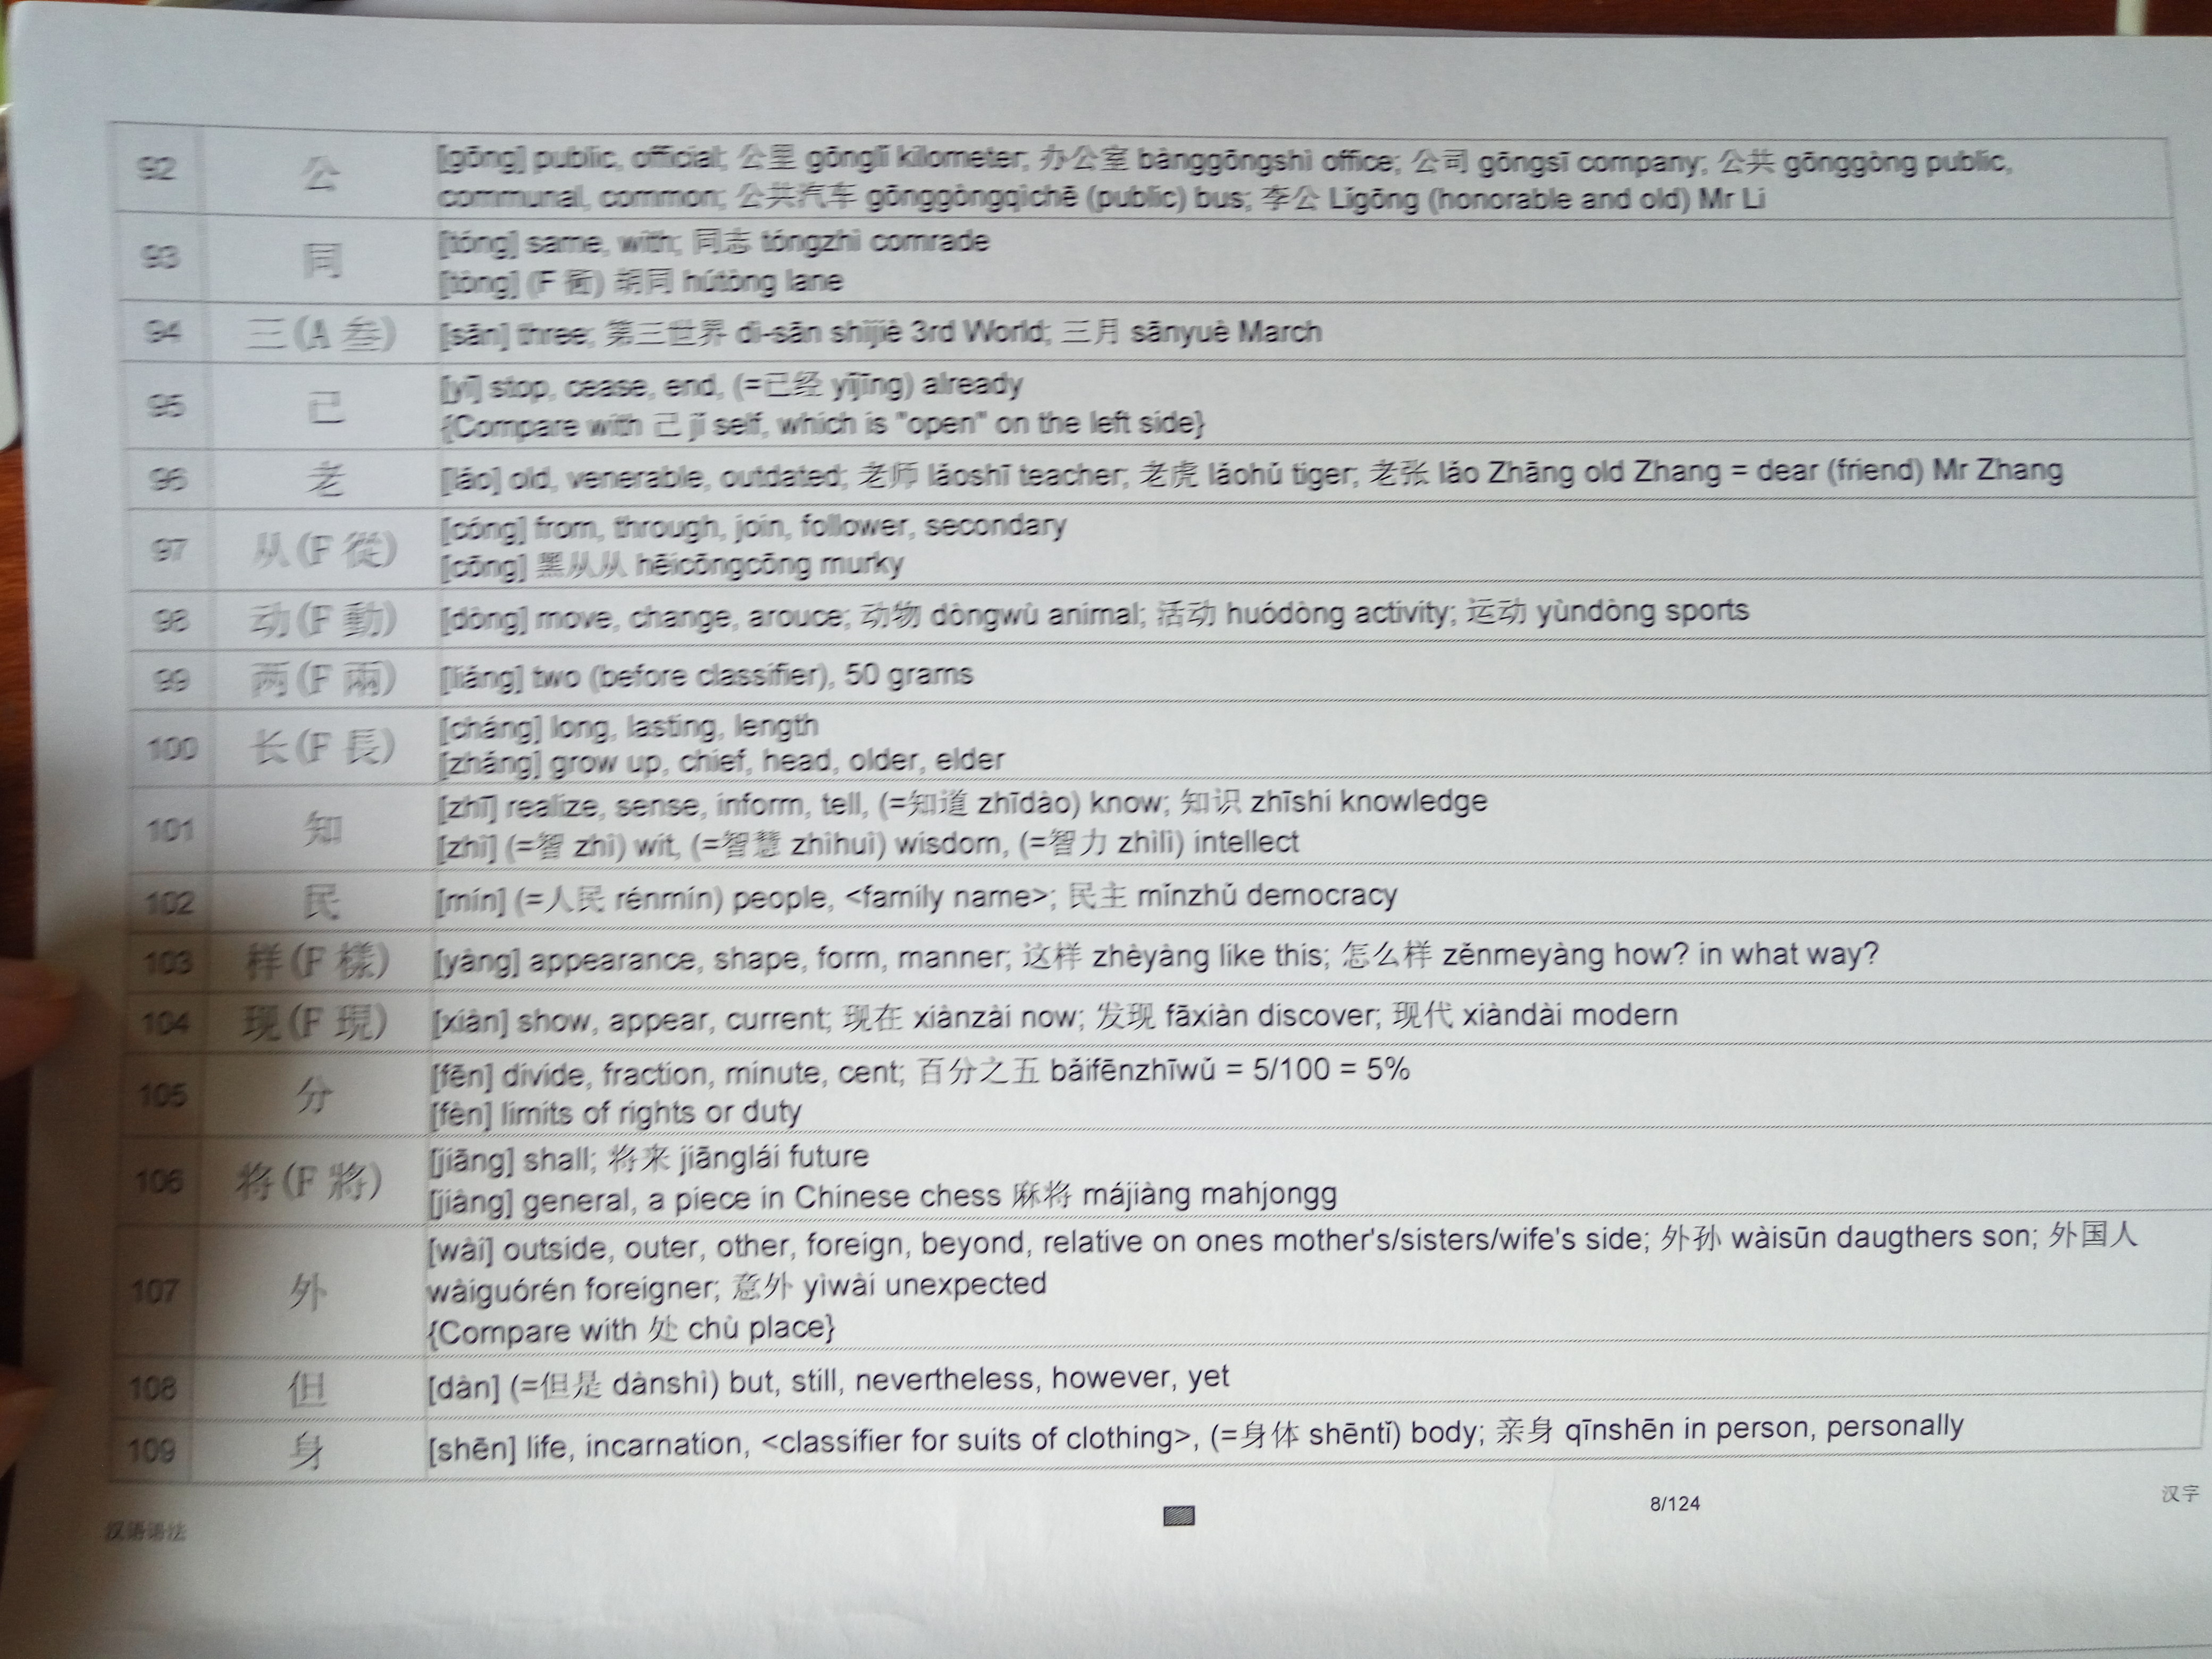 92 公 [gōng] public, official; 公里 gōnglǐ kilometer; 办公室 bànggōngshì office; 公司 gōngsī company; 公共 gōnggòng public,
communal, common; 公共汽车 gōnggòngqìchē (public) bus; 李公 Lǐgōng (honorable and old) Mr Li
93 同 [tóng] same, with; 同志 tóngzhì comrade
[tòng] (F 衕) 胡同 hútòng lane
94 三(A 叁) [sān] three; 第三世界 dì-sān shìjiè 3rd World; 三月 sānyuè March
95 已 [yǐ] stop, cease, end, (=已经 yǐjīng) already
{Compare with 己 jǐ self, which is "open" on the left side}
96 老 [lǎo] old, venerable, outdated; 老师 lǎoshī teacher; 老虎 lǎohǔ tiger; 老张 lǎo Zhāng old Zhang = dear (friend) Mr Zhang
97 从(F 從) [cóng] from, through, join, follower, secondary
[cōng] 黑从从 hēicōngcōng murky
98 动(F 動) [dòng] move, change, arouce; 动物 dòngwù animal; 活动 huódòng activity; 运动 yùndòng sports
99 两(F 兩) [liǎng] two (before classifier), 50 grams
100 长(F 長) [cháng] long, lasting, length
[zhǎng] grow up, chief, head, older, elder
101 知 [zhī] realize, sense, inform, tell, (=知道 zhīdào) know; 知识 zhīshi knowledge
[zhì] (=智 zhì) wit, (=智慧 zhìhuì) wisdom, (=智力 zhìlì) intellect
102 民 [mín] (=人民 rénmín) people, <family name>; 民主 mínzhǔ democracy
103 样(F 樣) [yàng] appearance, shape, form, manner; 这样 zhèyàng like this; 怎么样 zěnmeyàng how? in what way?
104 现(F 現) [xiàn] show, appear, current; 现在 xiànzài now; 发现 fāxiàn discover; 现代 xiàndài modern
105 分 [fēn] divide, fraction, minute, cent; 百分之五 bǎifēnzhīwǔ = 5/100 = 5%
[fèn] limits of rights or duty
106 将(F 將) [jiāng] shall; 将来 jiānglái future
[jiàng] general, a piece in Chinese chess 麻将 májiàng mahjongg
107 外 [wài] outside, outer, other, foreign, beyond, relative on ones mother's/sisters/wife's side; 外孙 wàisūn daugthers son; 外国人
wàiguórén foreigner; 意外 yìwài unexpected
{Compare with 处 chù place}
108 但 [dàn] (=但是 dànshì) but, still, nevertheless, however, yet
109 身 [shēn] life, incarnation, <classifier for suits of clothing>, (=身体 shēntǐ) body; 亲身 qīnshēn in person, personally
汉语语法 8/124 汉字